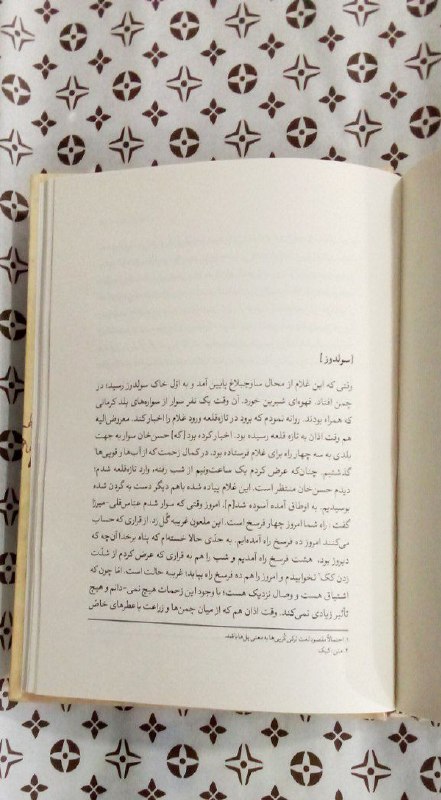 [سولدوز]
وقتی که این غلام از محال ساوجبلاغ پایین آمد و به اوّل خاک سولدوز رسید؛ در
چمن افتاد. قهوه‌ای شیرین خورد. آن وقت یک نفر سوار از سواره‌های بلد کرمانی
که همراه بودند، روانه نمودم که برود در تازه‌قلعه ورود غلام را اخبار کند. معروض‌الیه
هم وقت اذان به تازه قلعه رسیده بود. اخبار کرده بود [که] حسن‌خان سوار به جهت
بلدی به سه چهار راه برای غلام فرستاده بود. در کمال زحمت که از آب‌ها و قوپی‌ها
گذشتیم. چنان‌که عرض کردم یک ساعت‌ونیم از شب رفته، وارد تازه‌قلعه شدم؛
دیدم حسن‌خان منتظر است. این غلام پیاده شده باهم دیگر دست به گردن شده
بوسیدیم. به اوطاق آمده آسوده شد[م]. امروز وقتی که سوار شدم عبّاس‌قلی‌میرزا
گفت: راه شما امروز چهار فرسخ است. این ملعون غریبه گُل زد. از قراری که حساب
می‌کنند امروز ده فرسخ راه آمده‌ایم. به حدّی حالا خسته‌ام که پناه برخدا آن‌چه که
دیروز بود، هشت فرسخ راه آمدیم و شب را هم به قراری که عرض کردم از شدّت
زدن کک۲ نخوابیدم و امروز را هم ده فرسخ راه بیاید؛ غریبه حالت است. امّا چون که
اشتیاق هست و وصال نزدیک هست؛ با وجود این زحمات هیچ نمی‌دانم و هیچ
تأثیر زیادی نمی‌کند. وقت اذان هم که از میان چمن‌ها و زراعت با عطرهای خاصّ
۱. احتمالاً مقصود لغت ترکی کُرپی‌ها به معنی پل‌ها باشد.
۲. متن: کیک